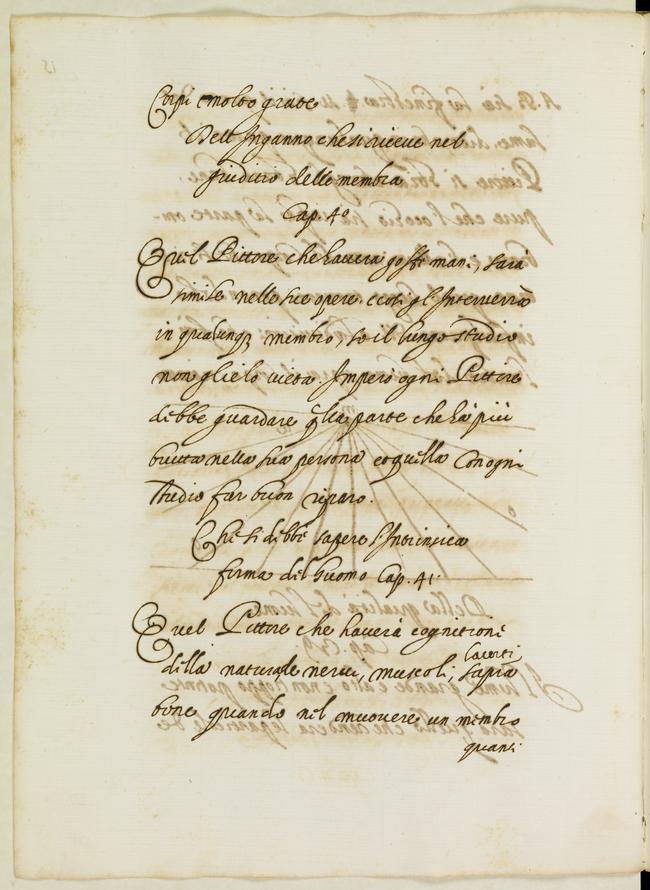 Corpi molto grate
Dell Inganno che si riceve nel
giuditio delle membra
Cap. 4º
Quel Pittore che havera goffe mani, sarà
simile nelle sue opere, e cosi gl'Interverrà
in qualunq3 membro, se il lungo studio
non glielo vieta. Imperò ogni Pittore
debbe guardare q̃lla parte che hà più
brutta nella sua persona, e a quella Con ogni
studio far buon riparo.
Che si debbe sapere l'Intrinsica
forma del huomo Cap. 41
Quel Pittore che haverà cognitione
della natura de nervi, muscoli,
lacerti
saprà
bene quando nel muovere un membro
quanti